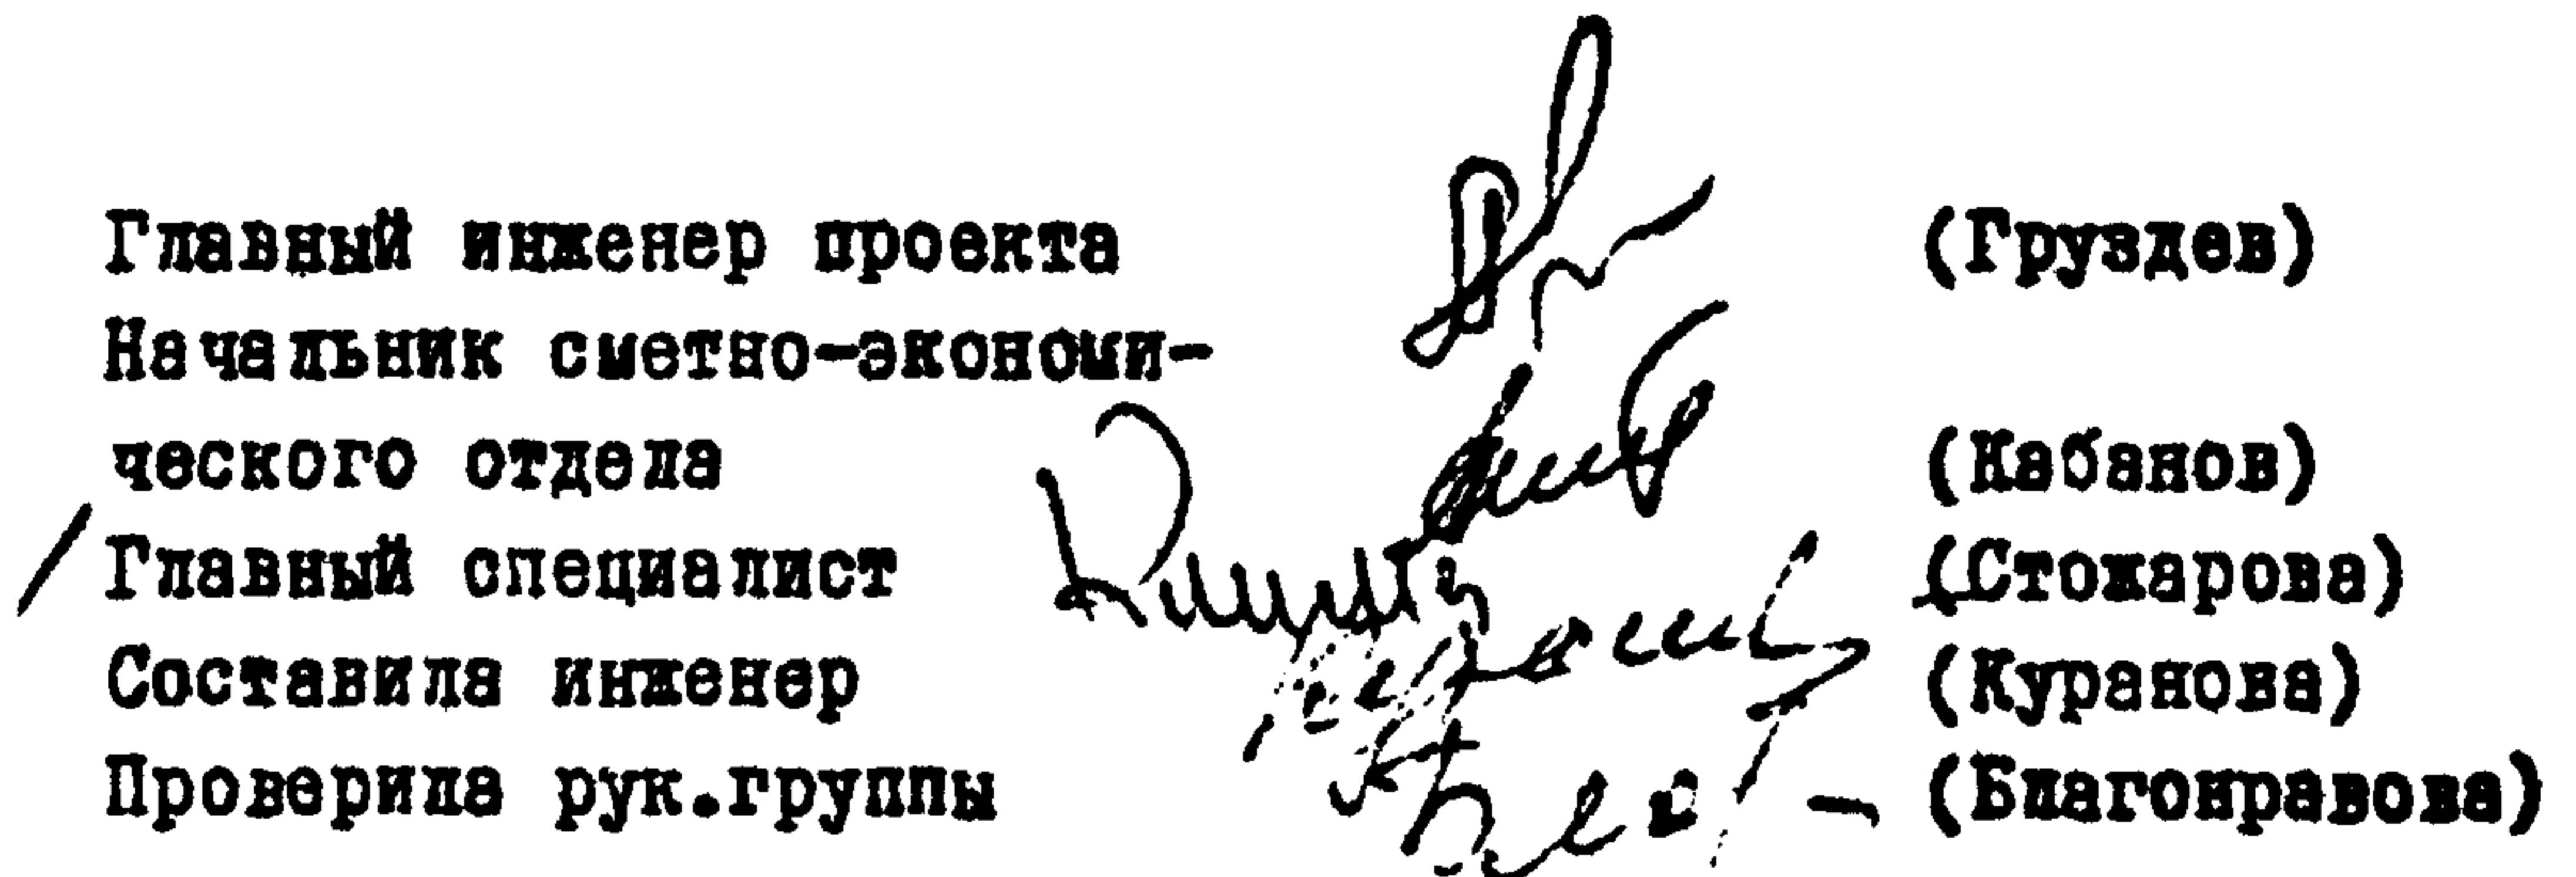 Главный инженер проекта (Груздев)
Начальник сметно-экономи-
ческого отдела (Кабанов)
Главный специалист (Стожарова)
Составила инженер (Куранова)
Проверила рук.группы (Благонравова)